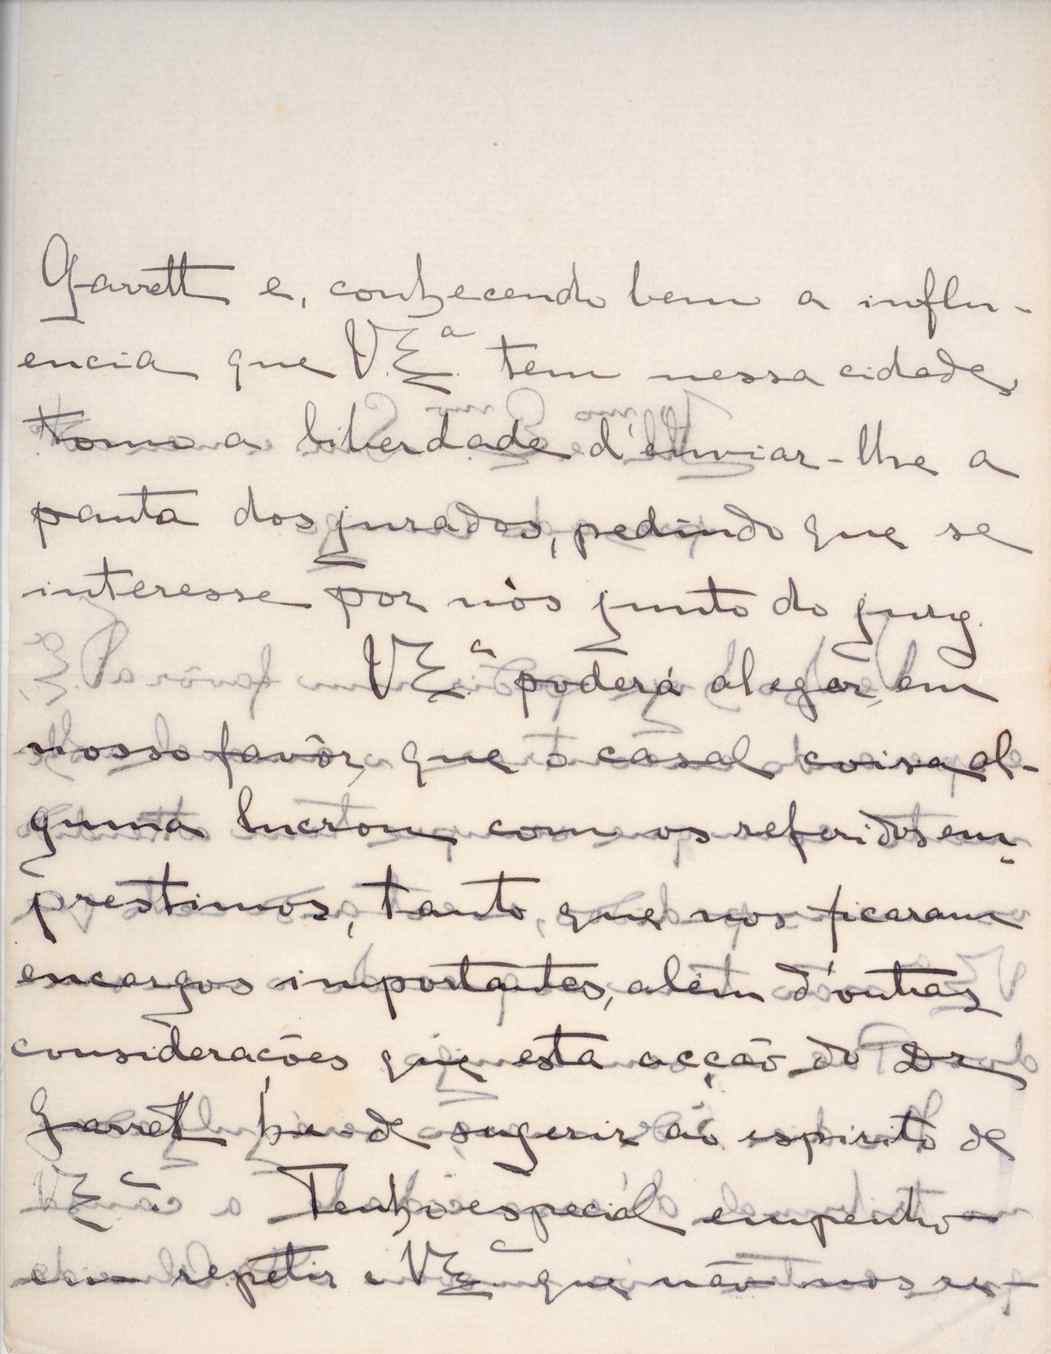 Garrett e, conhecendo bem a influ-
encia que V.Exª. tem nessa cidade,
tomo a liberdade d'enviar-lhe a
pauta dos jurados, pedindo que se
interesse por nòs junto do jury.
V.Exª. poderá alegar, em
nosso favôr, que o casal coisa al-
guma lucrou com os referidos em-
prestimos, tanto, que nos ficaram
encargos importantes, alêm d'outras
considerações que esta acção do Dr
Garrett ha-de sugerir ao espirito de
V.Exª. Tenho especial empenho
em repetir a V.Exª que não nos re-